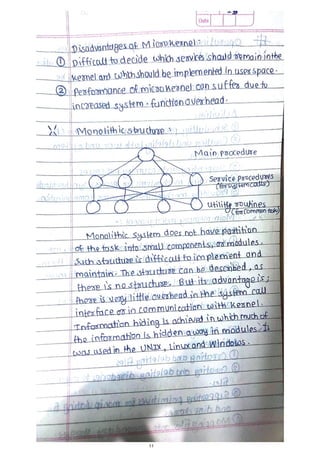 Date
Disadvantages of Microkernel:
① Difficult to decide which services should remain in the
kernel and which should be implemented in user space.
② Performance of microkernel can suffer due to
increased system-function overhead.
Monolithic structure:
Main procedure
Service Procedures
(for system calls)
Utility routines
(for common task)
Monolithic system does not have partition
of the task into small components, or modules.
Such structure is difficult to implement and
maintain. The structure can be described, as
there is no structure. But its advantage is;
there is very little overhead in the system call
interface or in communication with kernel.
Information hiding is achieved in which much of
the information is hidden away in modules. It
was used in the UNIX, Linux and Windows.
11